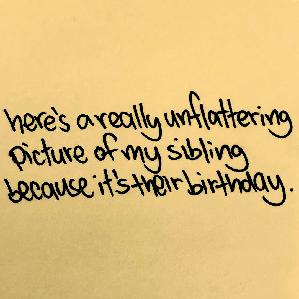 here's a really unflattering
picture of my sibling
because it's their birthday.